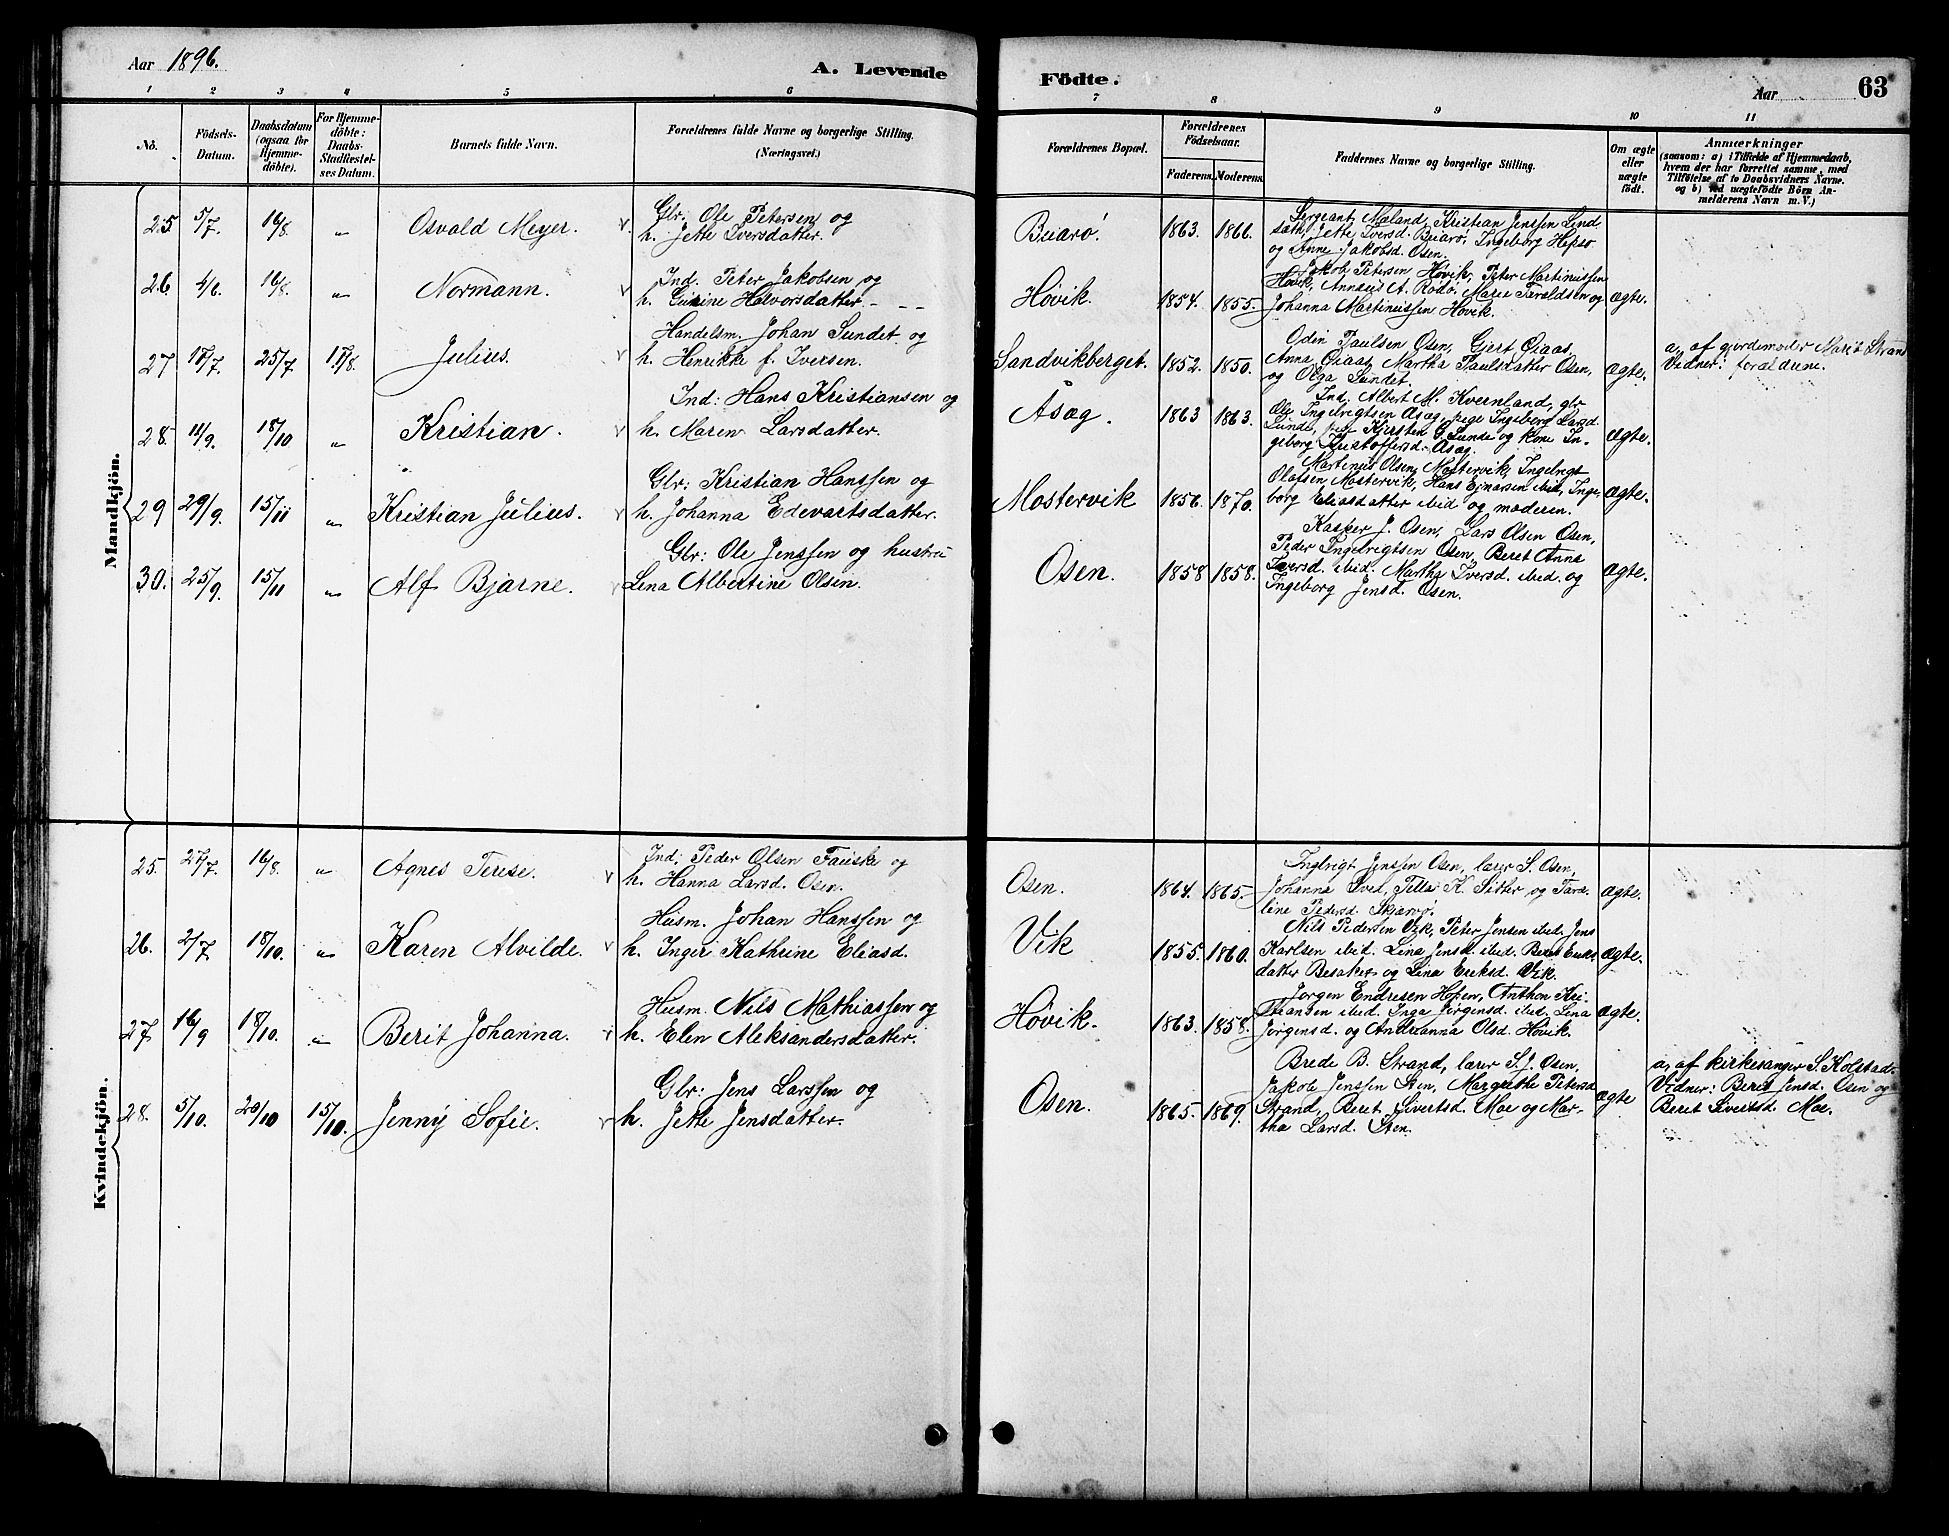 Aar 1896.
A. Levende
Födte.
Aar
63
1 2 3 4 5 6 7 8 9 10 11
No.
Födsels-Datum.
Daabsdatum (ogsaa for Hjemme-döbte).
For Hjemme-döbte: Daabs-Stadfæstel-ses Datum.
Barnets fulde Navn.
Forældrenes fulde Navne og borgerlige Stilling.
(Næringsvei.)
Forældrenes Bopæl.
Forældrenes Födselsaar.
Faderens. Moderens.
Faddernes Navne og borgerlige Stilling.
Om ægte eller uægte födt.
Anmærkninger
(saasom: a) i Tilfælde af Hjemmedaab,
hvem der har forrettet samme, med
Tilföielse af to Daabsvidners Navne.
og b) ved uægtefödte Börn An-
melderens Navn m. V.)
Mandkjön.
25 5/7. 16/8. „ Osvald Meyer. Gbr. Ole Petersen og
h. Jette Iversdatter.
Buarø. 1863. 1866.
Sergeant Mæland, Kristian Jenssen Lind
sath, Jette Iversd. Buarø, Ingeborg Hepsø
og Anne Jakobsd. Osen.
26. 4/6. 16/8. „ Normann. Ind. Peter Jakobsen og
h. Halvorsdatter.
Høvik. 1854. 1855.
Jakob Petersen Høvik, Peter Martinussen
Høvik, A. Rødø, Marie Taraldsen og
Johanna Martinussen Høvik.
ægte.
27 18/7. 25/7 15/8. Julius. Handelsm. Johan Sundet og
h. Henrikke f. Iversen.
Sandvikberget. 1852. 1850.
Odin Paulsen Osen, Gjert Qiaas,
Anna Qiaas, Martha Paulsdatter Osen,
og Olga Sundet.
ægte.
a, af gjordemoder Marit Strand
Vidner: forældrene.
28. 11/9. 18/10 „ Kristian. Ind: Hans Kristiansen og
h. Maren Larsdatter.
Åsæg. 1863 1863.
Ind. Albert M. Kvernland, gbr
Ole Ingelrigtsen Åsæg, pige Ingeborg Larsd.
Sunde, pige Kjersten G. Sunde og kone In-
geborg Kristoffersd. Åsæg.
ægte.
29 29/9. 15/11 „ Kristian Julius. Gbr: Kristian Hanssen og
h. Johanna Edevartsdatter.
Mostervik 1856. 1870.
Martinus Olsen, Mostervik, Ingelrigt
Olafsen Mostervik, Hans Ejnarsen ibid, Inge-
borg Eliasdatter ibid og moderen.
ægte.
30. 25/9. 15/11 „ Alf Bjarne. Gbr: Ole Jenssen og hustru
Lina Albertine Olsen.
Osen. 1858 1858.
Kasper J. Osen, Lars Olsen Osen,
Peder Ingelrigtsen Osen, Beret Anna
Iversd. ibid. Martha Iversd. ibid. og
Ingeborg Jensd. Osen.
ægte.
Kvindekjön.
25. 27/7. 16/8. „ Agnes Terese. Ind; Peder Olsen Fauske og
h. Hanna Larsd. Osen.
Osen. 1864. 1865.
Inglrigt Jenssen Osen, lærer S. Osen,
Johanna ibid, K. Sæther og
line Pedersd. Skjærvø.
ægte.
26. 2/7 18/10. „ Karen Alvilde. Husm. Johan Hanssen og
h. Inger Kathrine Eliasd.
Vik 1855. 1860.
Nils Pedersen Vik, Peter Jensen ibid. Jens
Karlsen ibid. Lina Jensd. ibid. Beret Eriks-
datter Besaker og Lina Eriksd. Vik.
ægte.
27 16/9 18/10. „ Berit Johanna. Husm. Nils Mathiassen og
h. Elen Aleksandersdatter.
Høvik. 1863. 1858.
Jørgen Endresen Hopen, Anthon Kri-
stiansen ibid. Inga Jørgensd. ibid. Lina
Jørgensd. og Andreanna Olsd. Høvik.
ægte.
28. 5/10. 20/10 15/10. Jenny Sofie. Gbr: Jens Larssen og
h. Jette Jensdatter.
Osen. 1865. 1869.
Brede B. Strand, lærer S. J. Osen,
Jakob Jenssen Sten, Margrethe Petersd
Strand, Beret Sivertsd. Moe og Mar-
tha Larsd. Sten.
ægte
a, af kirkesanger S. Kolstad.
Vidner: Beret Jensd. Osen og
Beret Sivertsd. Moe.